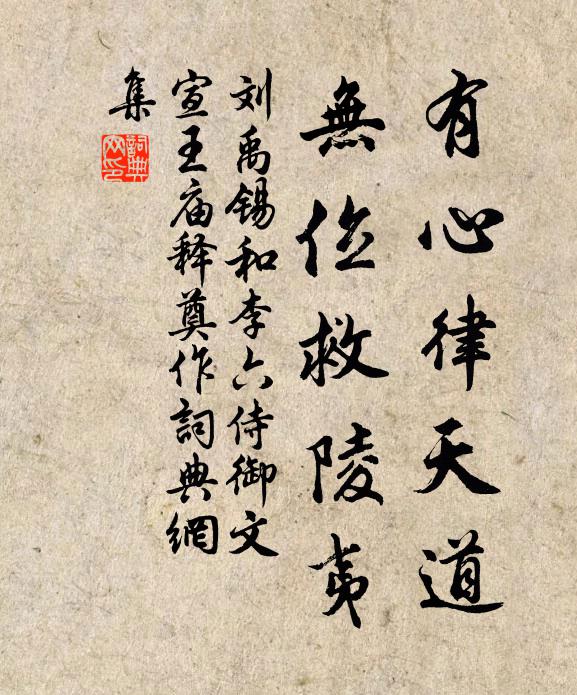 有心律天道
無位救陵夷
刘禹锡和李六侍御文
宣王庙释奠作詞典網
集
詞典
网印